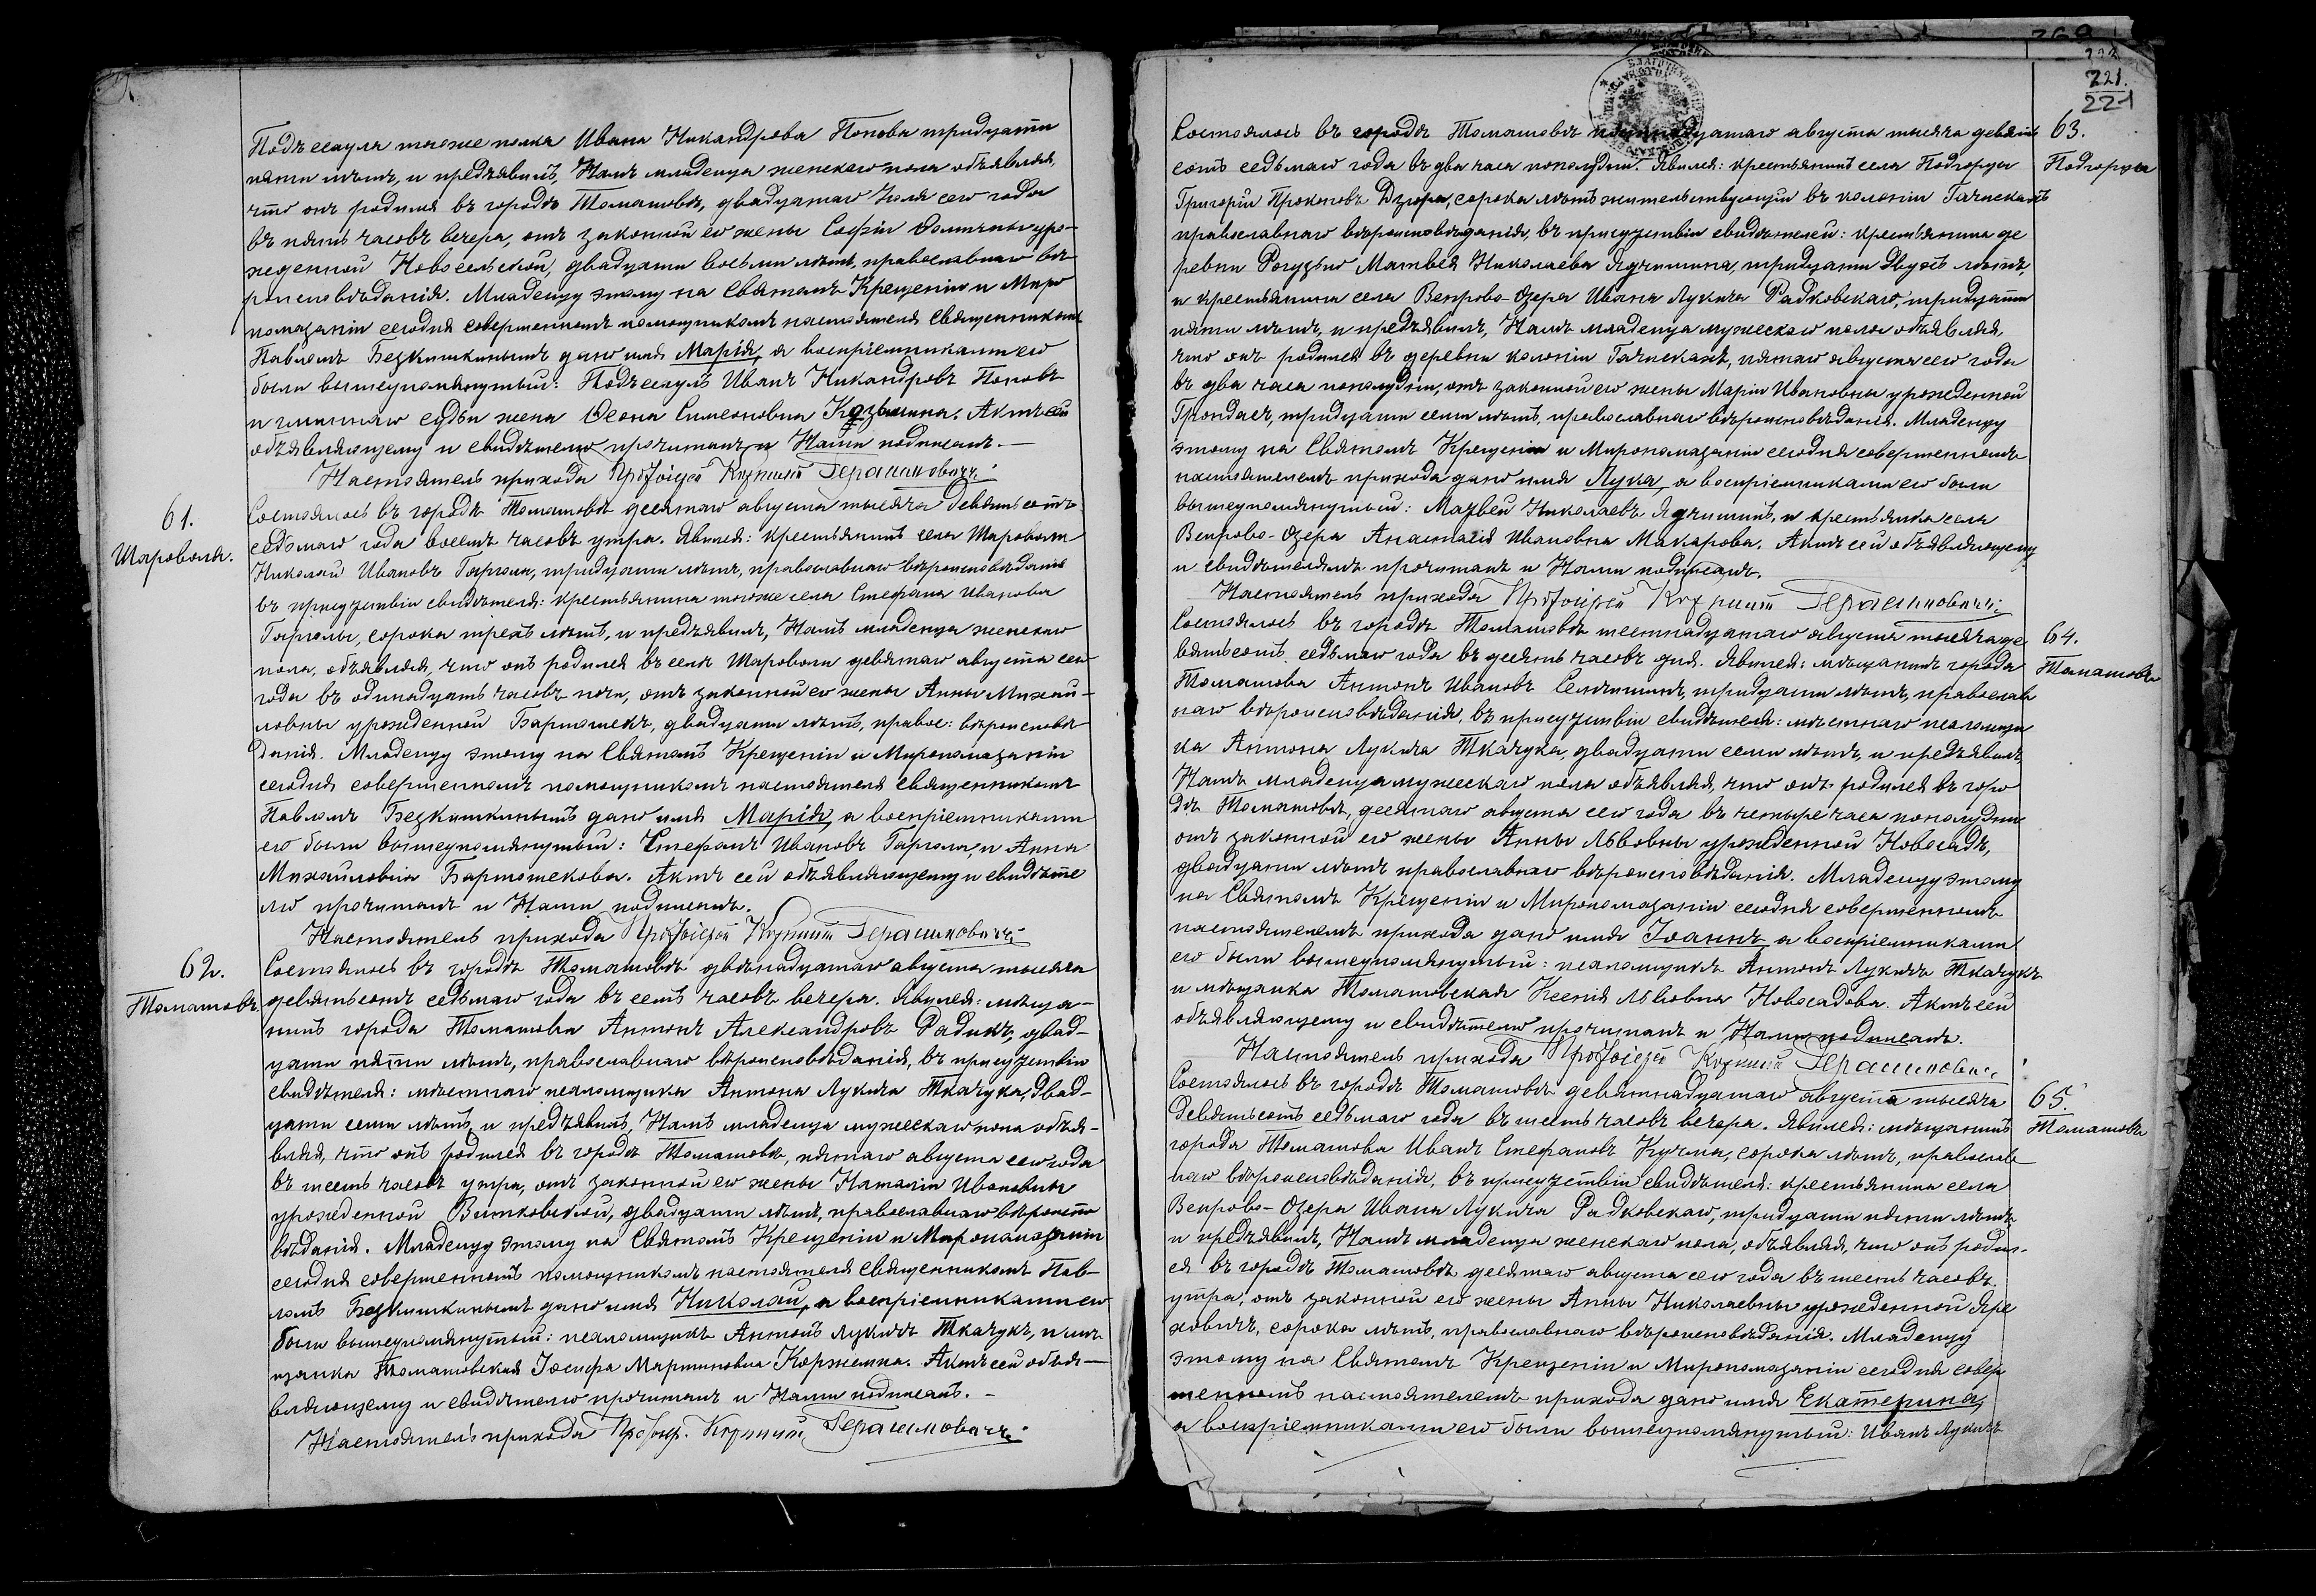 Подъесаула тогоже полка Ивана Никандрова Попова тридцати
пяти лѣтъ, и предъявилъ Намъ младенца женскаго пола объявляя,
что онъ родился въ городѣ Томашовѣ, двадцатаго Іюля сего года
въ пять часовъ вечера, отъ законной его жены Софіи уро-
жденной Новосельской, двадцати восьми лѣтъ, православнаго вѣ-
роисповѣданія. Младенцу этому на Святомъ Крещеніи и Миро
помазаніи сегодня совершенномъ помощникомъ настоятеля Священникомъ
Павломъ Безкишкинымъ дано имя Марія, а воспріемниками его
были вышеупомянутый: Подъесаулъ Иванъ Никандровъ Поповъ
и гминнаго судьи жена Симеоновна. Актъ сей
объявляющему и свидѣтелю прочитанъ и Нами подписанъ. —
Настоятель прихода Протоіерей Герасимовичъ
61.
Шароволя.
Состоялось въ городѣ Томашовѣ десятаго августа тысяча девятьсотъ
седьмаго года восемь часовъ утра. Явился: крестьянинъ села Шароволи
Николай Ивановъ Гаргола, тридцати лѣтъ, православнаго вѣроисповѣданія
въ присутствіи свидѣтеля: крестьянина тогоже села Стефана Иванова
Гарголы, сорока трехъ лѣтъ, и предъявилъ Намъ младенца женскаго
пола, объявляя, что онъ родился въ селѣ Шароволи девятаго августа сего
года въ одинадцать часовъ ночи, отъ законной его жены Анны Михай-
ловны урожденной Бартошекъ, двадцати лѣтъ, правос: вѣроисповѣ
данія. Младенцу этому на Святомъ Крещеніи и Миропомазаніи
сегодня совершенномъ помощникомъ настоятеля Священникомъ
Павломъ Безкишкинымъ дано имя Марія, а воспріемниками
его были вышеупомянутый: Стефанъ Ивановъ Гаргола, и Анна
Михайловна Бартошекова. Актъ сей объявляющему и свидѣте
лю прочитанъ и Нами подписанъ.
Настоятель прихода Протоіерей Герасимовичъ
62.
Томашовъ.
Состоялось въ городѣ Томашовѣ двѣнадцатаго августа тысяча
девятьсотъ седьмаго года въ семь часовъ вечера. Явился: мѣща-
нинъ города Томашова Антонъ Александровъ Радикъ, двад-
цати пяти лѣтъ, православнаго вѣроисповѣданія, въ присутствіи
свидѣтеля: мѣстнаго псаломщика Антона Лукича Ткачука, двад-
цати семи лѣтъ, и предъявилъ Намъ младенца мужескаго пола объя-
вляя, что онъ родился въ городѣ Томашовѣ, пятаго августа сего года
въ шесть часовъ утра, отъ законной его жены Наталіи Ивановны
урожденной Витковской, двадцати лѣтъ, православнаго вѣроиспо
вѣданія. Младенцу этому на Святомъ Крещеніи и Миропомазаніи
сегодня совершенномъ помощникомъ настоятеля Священникомъ Пав-
ломъ Безкишкинымъ дано имя Николай, а воспріемниками его
были вышеупомянутый: псаломщикъ Антонъ Лукичъ Ткачукъ, и мѣ
щанка Томашовская Іосифа Мартиновна. Актъ сей объя-
вляющему и свидѣтелю прочитанъ и Нами подписанъ. —
Настоятель прихода Протоіер. Герасимовичъ
221.
221
63.
Подгорцы
Состоялось въ городѣ Томашовѣ августа тысяча девять
сотъ седьмаго года въ два часа пополудни. Явился: крестьянинъ села Подгорцы
Григорій Прокоповъ Дзюра, сорока лѣтъ жительствующій въ колоніи
православнаго вѣроисповѣданія, въ присутствіи свидѣтелей: крестьянина де
ревни Рогузьно Матвея Николаева Ядчишина, тридцати двухъ лѣтъ,
и крестьянина села Венрово-Озера Ивана Лукича Радковскаго, тридцати
пяти лѣтъ, и предъявилъ, Намъ младенца мужескаго пола объявляя,
что онъ родился въ деревни колоніи, пятаго августа сего года
въ два часа пополудни, отъ законной его жены Маріи Ивановны урожденной
тридцати семи лѣтъ, православнаго вѣроисповѣданія. Младенцу
этому на Святомъ Крещеніи и Миропомазаніи сегодня совершенномъ
настоятелемъ прихода дано имя Лука, а воспріемниками его были
вышеупомянутый: Матвей Николаевъ Ядчишинъ, и крестьянка села
Венрово-Озера Анастасія Ивановна Макарова. Актъ сей объявляющему
и свидѣтелямъ прочитанъ и Нами подписанъ.
Настоятель прихода Протоіерей Герасимовичъ
64.
Томашовъ
Состоялось въ городѣ Томашовѣ шестнадцатаго августа тысяча де
вятьсотъ седьмаго года въ десять часовъ дня. Явился: мѣщанинъ города
Томашова Антонъ Ивановъ, тридцати лѣтъ, православ
наго вѣроисповѣданія, въ присутствіи свидѣтеля: мѣстнаго псаломщи
ка Антона Лукича Ткачука, двадцати семи лѣтъ, и предъявилъ,
Намъ младенца мужескаго пола объявляя, что онъ родился въ горо
дѣ Томашовѣ, десятаго августа сего года въ четыре часа пополудни
отъ законной его жены Анны Львовны урожденной Новосадъ,
двадцати лѣтъ православнаго вѣроисповѣданія. Младенцу этому
на Святомъ Крещеніи и Миропомазаніи сегодня совершенномъ
настоятелемъ прихода дано имя Іоаннъ, а воспріемниками
его были вышеупомянутый: псаломщикъ Антонъ Лукичъ Ткачукъ
и мѣщанка Томашовская Ксенія Львовна Новосадова. Актъ сей
объявляющему и свидѣтелю прочитанъ и Нами подписанъ.
Настоятель прихода Протоіерей Герасимовичъ
65.
Томашовъ
Состоялось въ городѣ Томашовѣ девятнадцатаго августа тысяча
девятьсотъ седьмаго года въ шесть часовъ вечера. Явился: мѣщанинъ
города Томашова Иванъ Стефановъ Кучма, сорока лѣтъ, православ
наго вѣроисповѣданія, въ присутствіи свидѣтеля: крестьянина села
Венрово-Озера Ивана Лукича Радковскаго, тридцати пяти лѣтъ,
и предъявилъ, Намъ младенца женскаго пола, объявляя, что онъ родил-
ся въ городѣ Томашовѣ десятаго августа сего года въ шесть часовъ
утра, отъ законной его жены Анны Николаевны урожденной Яре
ховичъ, сорока лѣтъ, православнаго вѣроисповѣданія. Младенцу
этому на Святомъ Крещеніи и Миропомазаніи сегодня совер
шенномъ настоятелемъ прихода дано имя Екатерина,
а воспріемниками его были вышеупомянутый: Иванъ Лукичъ